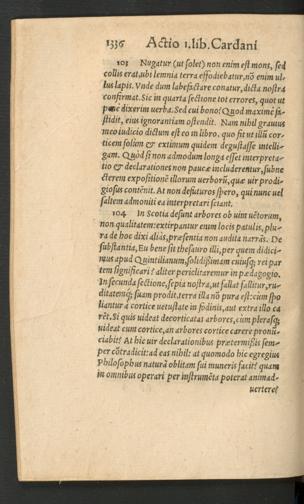 1336 Actio 1. lib. Cardani
103 Nugatur (ut solet) non enim est mons, sed
collis erat, ubi lemnia terra effodiebatur, nõ enim ul-
lus lapis. Vnde dum labefactare conatur, dicta nostra
confirmat. Sic in quarta sectione tot errores, quot ut
penè dixerim uerba. Sed cui bono? Quod maximè fa-
stidit, eius ignorantiam ostendit. Nam nihil grauius
meo iudicio dictum est eo in libro. quo fit ut illũ cor-
ticem solùm & extimum quidem degustasse intelli-
gam. Quòd si non admodum longa esset interpreta-
tio & declarationes non paucæ includerentur, subne
cterem expositionẽ illorum uerborũ, quæ uir prodi-
giosus contẽnit. At non defuturos spero, qui nunc uel
saltem admoniti ea interpretari sciant.
104 In Scotia desunt arbores ob uim uẽtorum,
non qualitatem: extirpantur enim locis patulis, plu-
ra de hoc dixi aliàs, præsentia non audita narras. De
substantia, Eu bene sit thesauro illi, per quem didici-
mus apud Quintilianum, solidissimam cuiusq; rei par
tem significari? aliter periclitaremur in pædagogio.
In secunda sectione, sepia nostra, ut fallat fallitur, ru-
ditatemq; suam prodit. terra illa nõ pura est: cùm spo
liantur à cortice uetustate in fodinis, aut extra illo ca
rẽt. Si quis uideat decorticatas arbores, cùm plerasq;
uideat cum cortice, an arbores cortice carere pronũ-
ciabit? At hic uir declarationibus prætermißis sem-
per cõtradicit: ad eas nihil: at quomodo hic egregius
Philosophus naturã oblitam sui muneris facit? quam
in omnibus operari per instrumẽta poterat animad-
uertere?